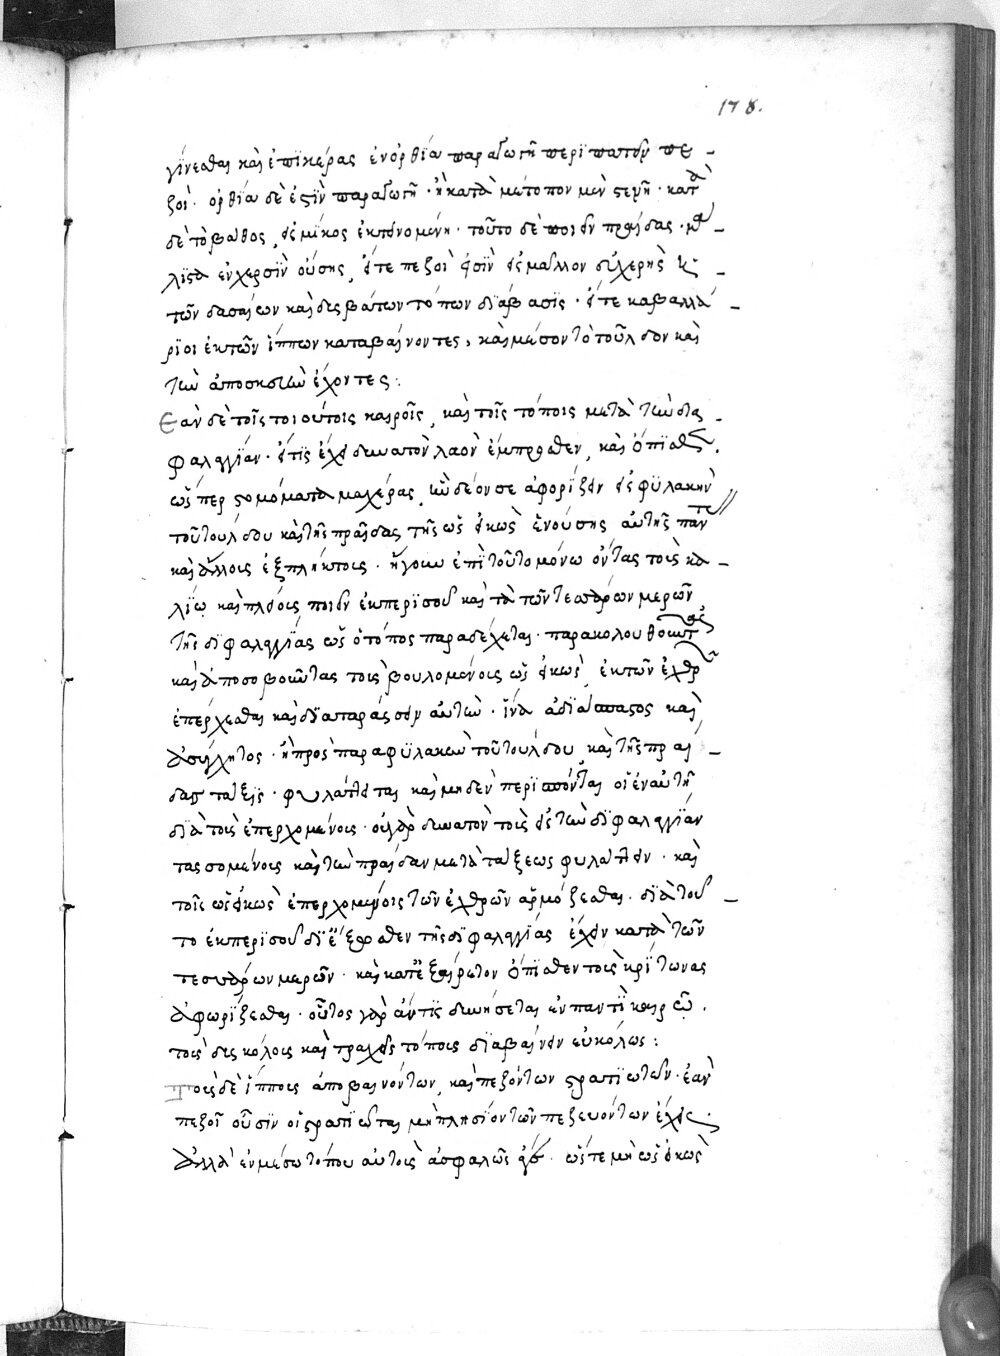 178.
γίνεσθαι καὶ ἐπὶ κέρας ἐν ὀρθία παραγωγῆ περιπατεῖν πε-
ζοί· ὀρθία δέ ἐστιν παραγωγῆ· ἡ κατὰ μέτοπον μὲν στενὴ· κατὰ
δὲ τὸ βάθος, εἰς μῖκος ἐκτεινομένη· τοῦτο δὲ ποιεῖν πραίδας· μά-
λιστα ἐν χερσὶν οὔσης, εἴτε πεζοὶ εἰσὶν εἰς μᾶλλον δυσχερὴς
τῶν δασαίων καὶ δυσβάτων τόπων διάβασις· εἴτε καβαλλά-
ριοι ἐκ τῶν ἵππων καταβαίνοντες, καὶ μέσον τὸ τοῦλδον καὶ
τὴν ἀποσκευὴν ἔχοντες:
Ἐὰν δὲ τοῖς τοιούτοις καιροῖς, καὶ τοῖς τόποις μετὰ τὴν δι-
φαλαγγίαν· εἴτις ἔχει δυνατὸν λαὸν ἔμπροσθεν, καὶ ὄπισθεν.
ὥσπερ στομώματα μαχέρας, δέον σε ἀφορίζειν εἰς φύλακὴν
τοῦ τούλδου καὶ τῆς πραίδας τῆς ὡς εἰκὼς ἐνούσης αὐτῆς πάντη
καὶ ἄλλοις ἐξπλήκτοις· ἤγουν ἐπὶ τοῦτο μόνω ὄντας τοὺς κα-
λίω καὶ πλείοις ποιεῖν ἐκ περισσοῦ καὶ τὰ τῶν τεσσάρων μερῶν
τῆς διφαλαγγίας ὡς ὁ τόπος παραδέχεται· παρακολουθοῦντας
καὶ ἀποσοβοῦντας τοὺς βουλομένοις ὡς εἰκὼς, ἐκ τῶν ἐχθρῶν
ἐπέρχεσθαι καὶ διαταράσσειν αὐτὴν· ἵνα ἀδιάσπαστος καὶ
ἀσύγχητος· ἡ πρὸς παραφύλακὴν τοῦ τούλδου, καὶ τῆς πραί-
δας τάξις· φυλάττεται καὶ μηδὲν περισπόνται οἱ ἐν αὐτῇ
διὰ τοὺς ἐπερχομένοις· οὐ γὰρ δυνατὸν τοὺς εἰς τὴν διφαλαγγίαν
τασσομένοις καὶ τὴν πραίδαν μετὰ τάξεως φυλάττειν· καὶ
τοῖς ὡς εἰκὼς ἐπερχομένοις τῶν ἐχθρῶν ἁρμόζεσθαι· διὰ τοῦ-
το ἐκ περισσοῦ δι' ἔξωθεν τῆς διφαλαγγίας ἔχειν κατὰ τῶν
τεσσάρων μερῶν· καὶ κατ' ἐξαίρετον ὄπισθεν τοὺς κρίτωνας
ἀφωρίζεσθαι· οὕτος γὰρ ἄν τις δυνήσεται ἐν παντὶ καιρῶ.
τοὺς δυσκόλοις καὶ τραχεῖς τόποις διαβαίνειν εὐκόλως:
Τοὺς δὲ ἵπποις ἀποβαινόντων, καὶ πεζόντων στρατιωτῶν· ἐὰν
πεζοὶ οὖσιν οἱ στρατιῶται μὴ πλησίον τῶν πεζευόντων ἔχεις·
ἀλλὰ ἐν μέσω τόπου αὐτοὺς ἀσφαλῶς· ὥστε μὴ ὡς εἰκὼς